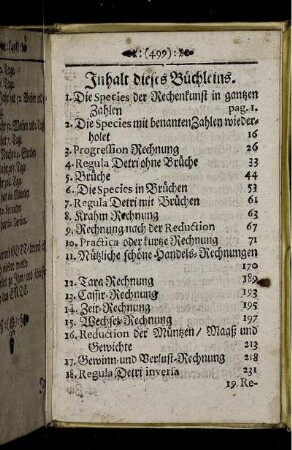 :(499):
Inhalt dieses Büchleins.
1. Die Species der Rechenkunst in gantzen
Zahlen pag. 1.
2. Die Species mit benanten Zahlen wieder-
holet 16
3. Progression Rechnung 26
4. Regula Detri ohne Brüche 33
5. Brüche 44
6. Die Species in Brüchen 53
7. Regula Detri mit Brüchen 61
8. Krahm Rechnung 63
9. Rechnung nach der Reduction 67
10. Practica oder kurtze Rechnung 71
11. Nützliche schöne Handels-Rechnungen
170
12. Tara Rechnung 189
13. Cassir-Rechnung 193
14. Zeit-Rechnung 195
15. Wechsel-Rechnung 197
16. Reduction der Müntzen / Maaß und
Gewichte 213
17. Gewinn und Verlust-Rechnung 218
18. Regula Detri inversa 231
19. Re-